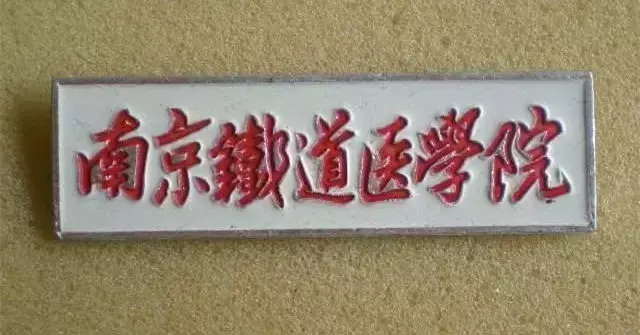 南京鐵道医學院